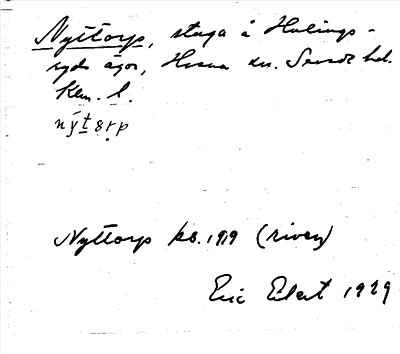 Nyttorp, stuga å Hulings-
ryds ägor, Hvena sn. Sevede hd.
Klm. l.
nýt8rp
Nyttorp kb. 1919 (riven)
Eric Elert 1929